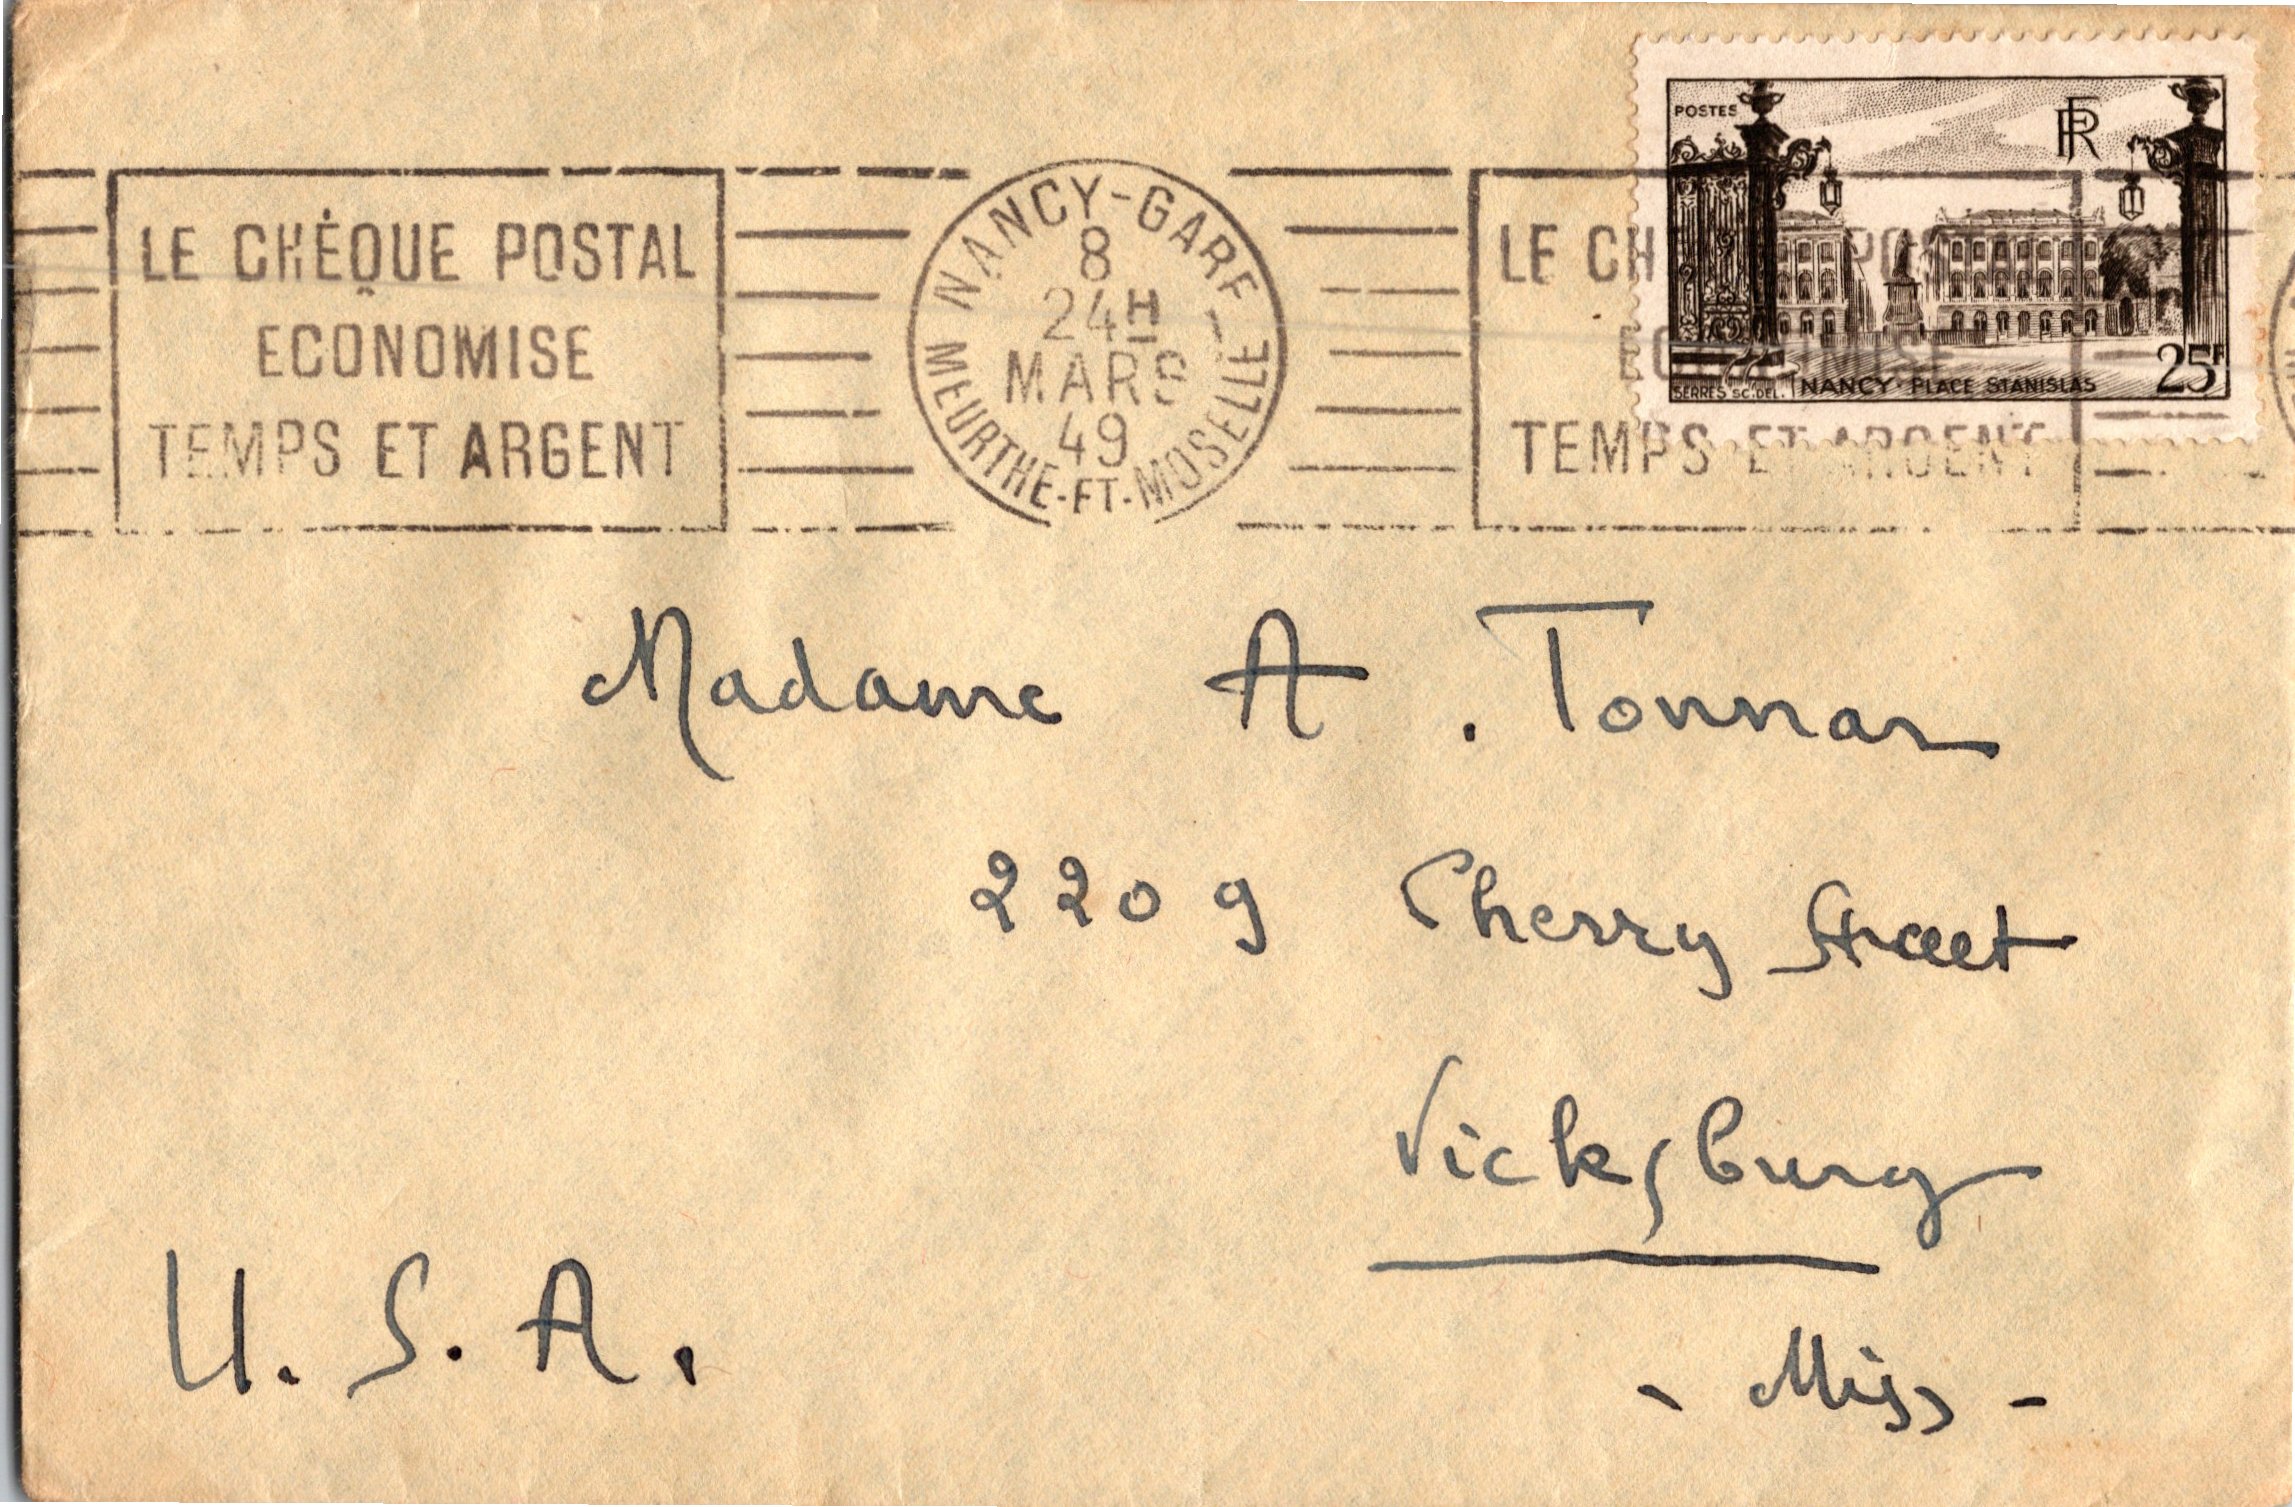 POSTES RF
SERRES SC. DEL. NANCY - PLACE STANISLAS 25F
LE CHÈQUE POSTAL
ECONOMISE
TEMPS ET ARGENT
NANCY-GARE
8
24H
MARS
49
MEURTHE-ET-MOSELLE
LE CH POS
TEMPS ET ARGENT
Madame A. Tonnar
2209 Cherry Street
Vicksburg
U.S.A.
- Miss -